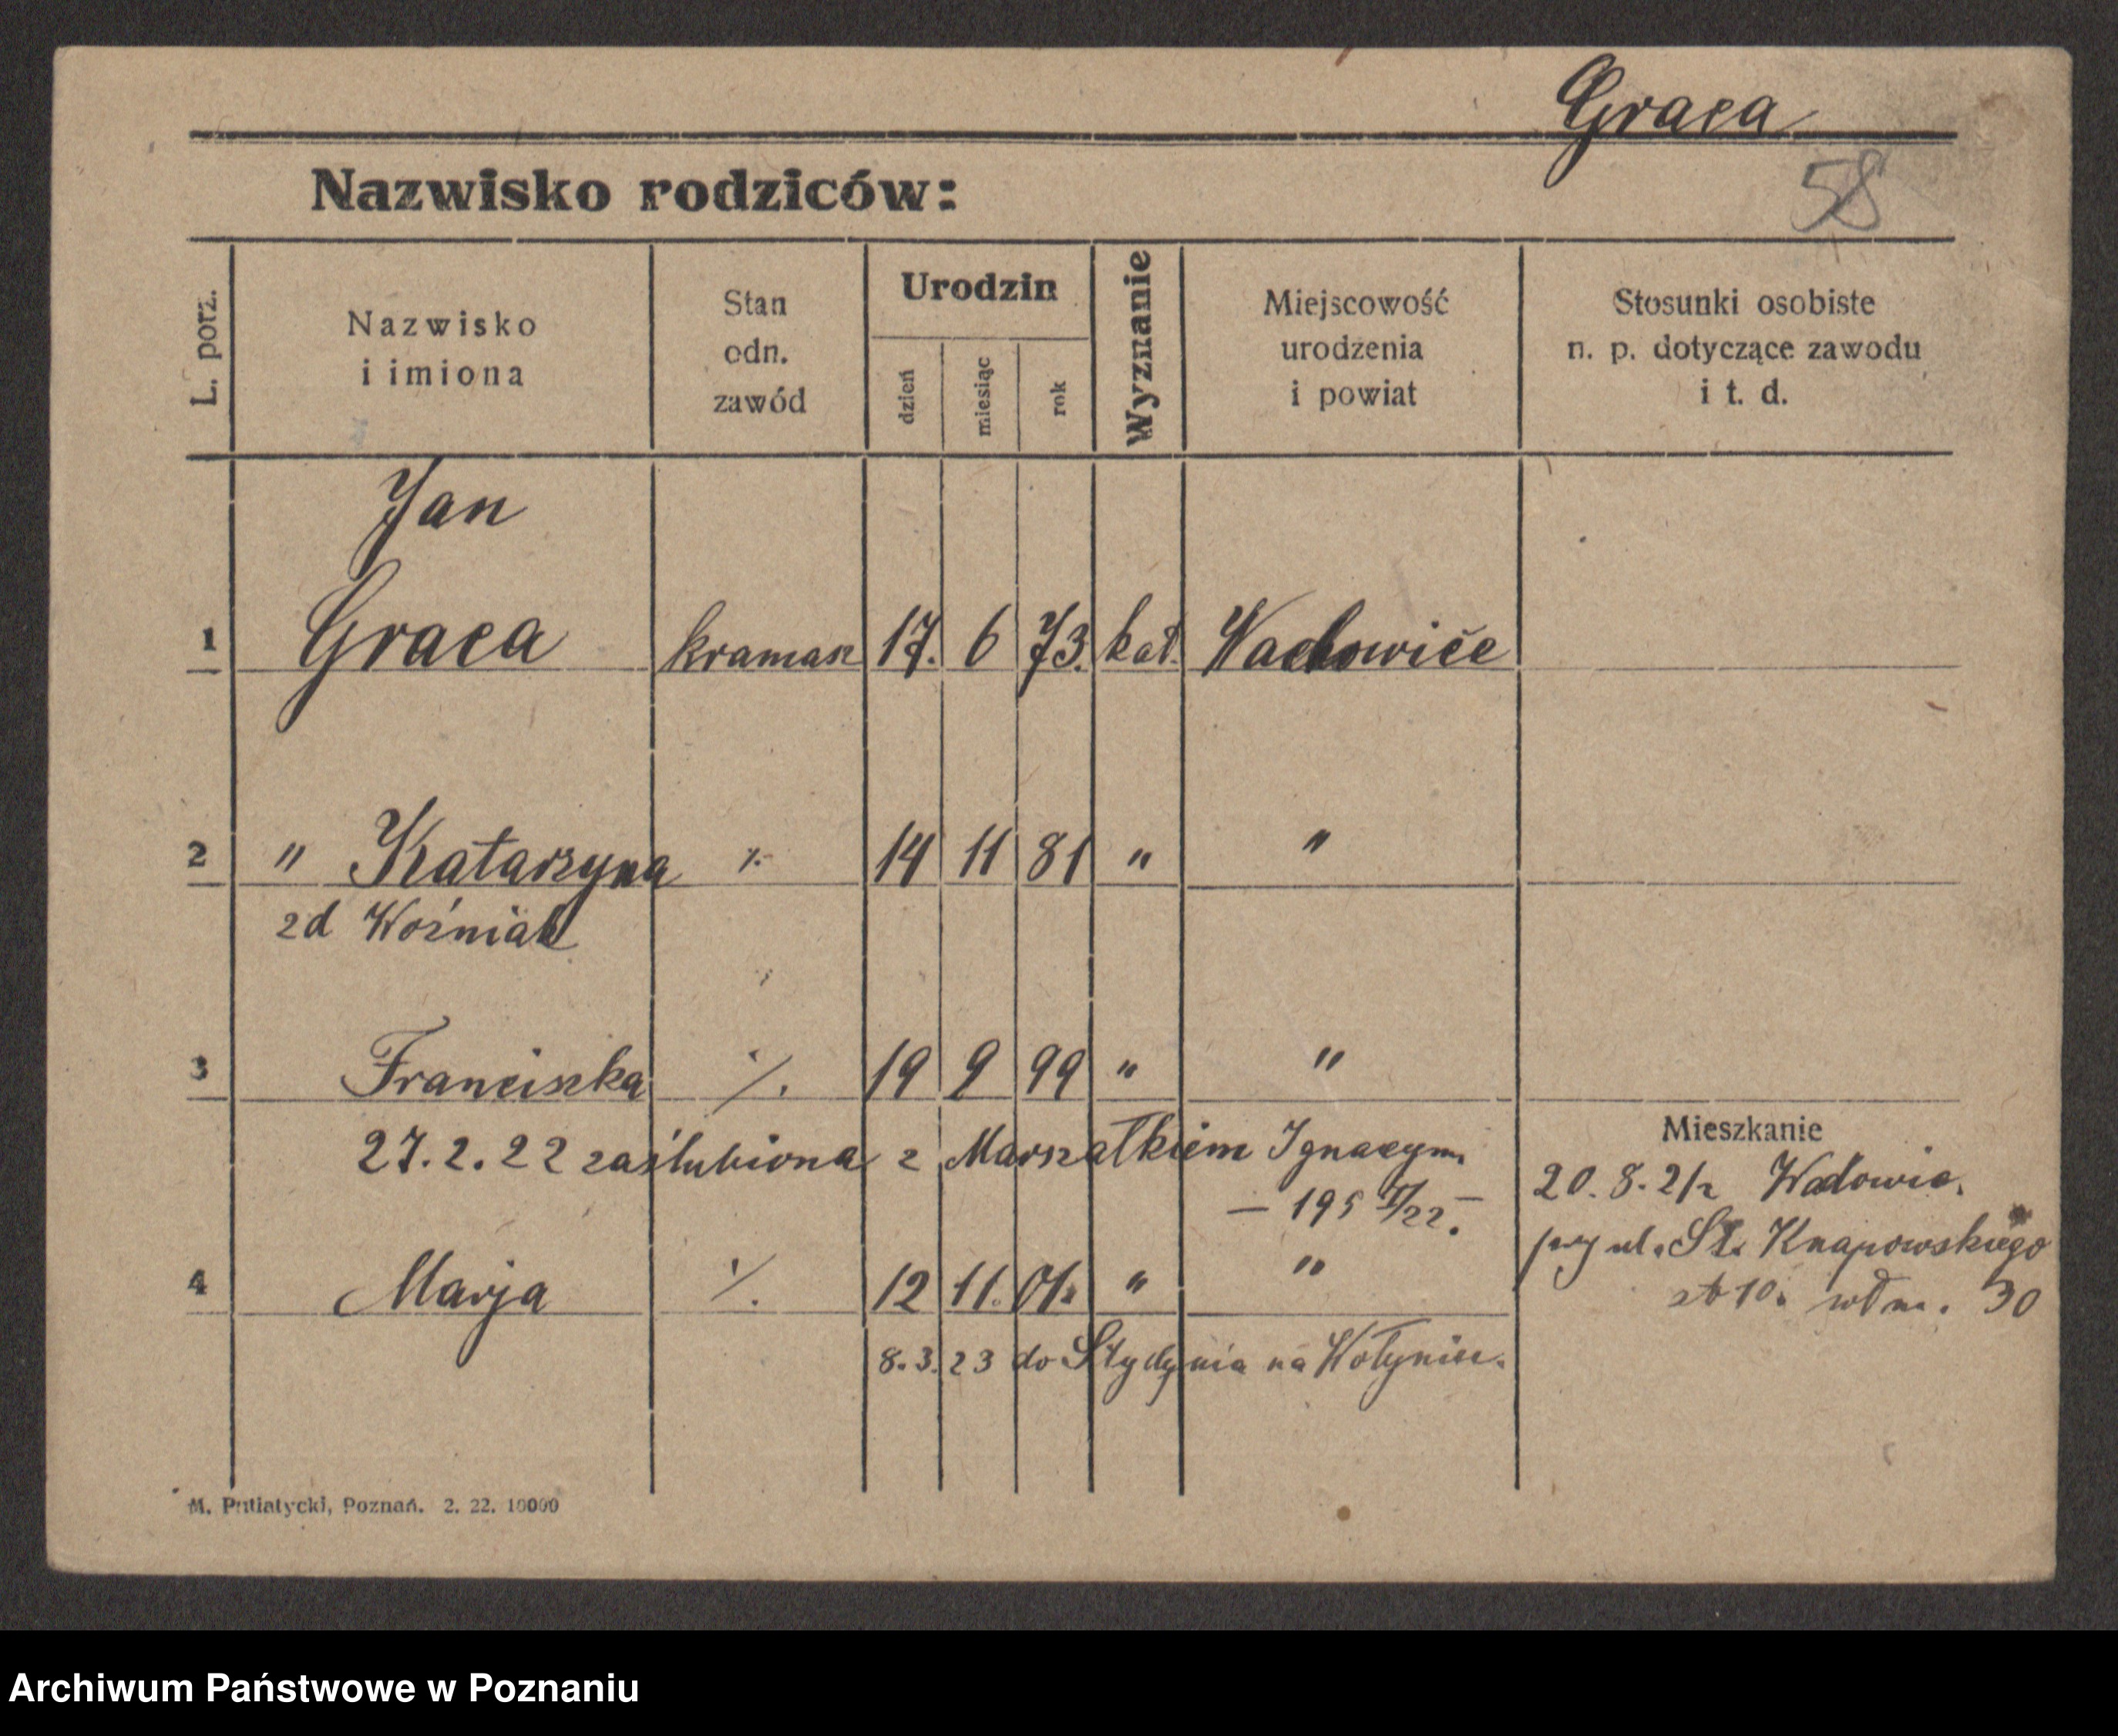 Graca
58
Nazwisko rodziców:
L. porz.
Nazwisko
i imiona
Stan
odn.
zawód
Urodzin
dzień
miesiąc
rok
Wyznanie
Miejscowość
urodzenia
i powiat
Stosunki osobiste
n. p. dotyczące zawodu
i t. d.
Jan
1 Graca kramarz 17. 6 73. kat.
2 " Katarzyna 14 11 81 " "
zd Woźniak
3 Franciszka ·/. 19 9 99 " "
27.2.22 zaślubiona z Marszałkiem Ignacym
— 195 /22. —
4 Marja ·/. 12 11. 01. " "
8.3.23 do Stydynia na Wołyniu.
Mieszkanie
20.8.21 z Wadowic.
przy ul. St. Knapowskiego
10. 30
M. Putiatycki, Poznań. 2. 22. 10000
Archiwum Państwowe w Poznaniu